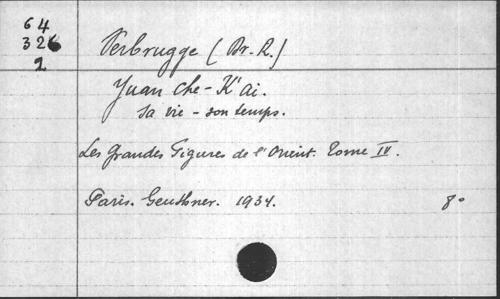 64
326
2
Verbrugge (Dr. R.)
Yuan Che-K'ai.
Sa vie - son temps.
Les grandes Figures de l'Orient. Tome IV.
Paris. Geuthner. 1934. 8°